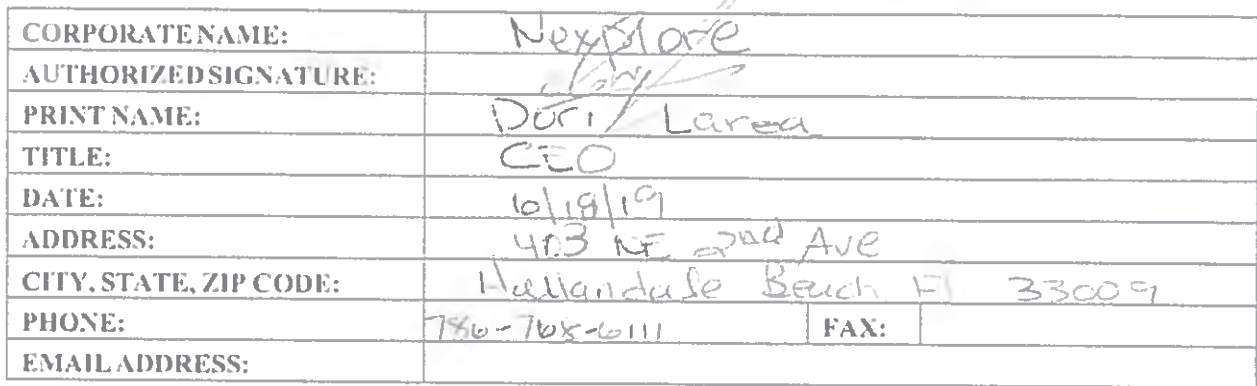 CORPORATE NAME: Nexplore
AUTHORIZED SIGNATURE:
PRINT NAME: Dori Larea
TITLE: CEO
DATE: 6/18/19
ADDRESS: 403 NE 2nd Ave
CITY, STATE, ZIP CODE: Hallandale Beach Fl 33009
PHONE: 786-768-6111 FAX:
EMAIL ADDRESS: